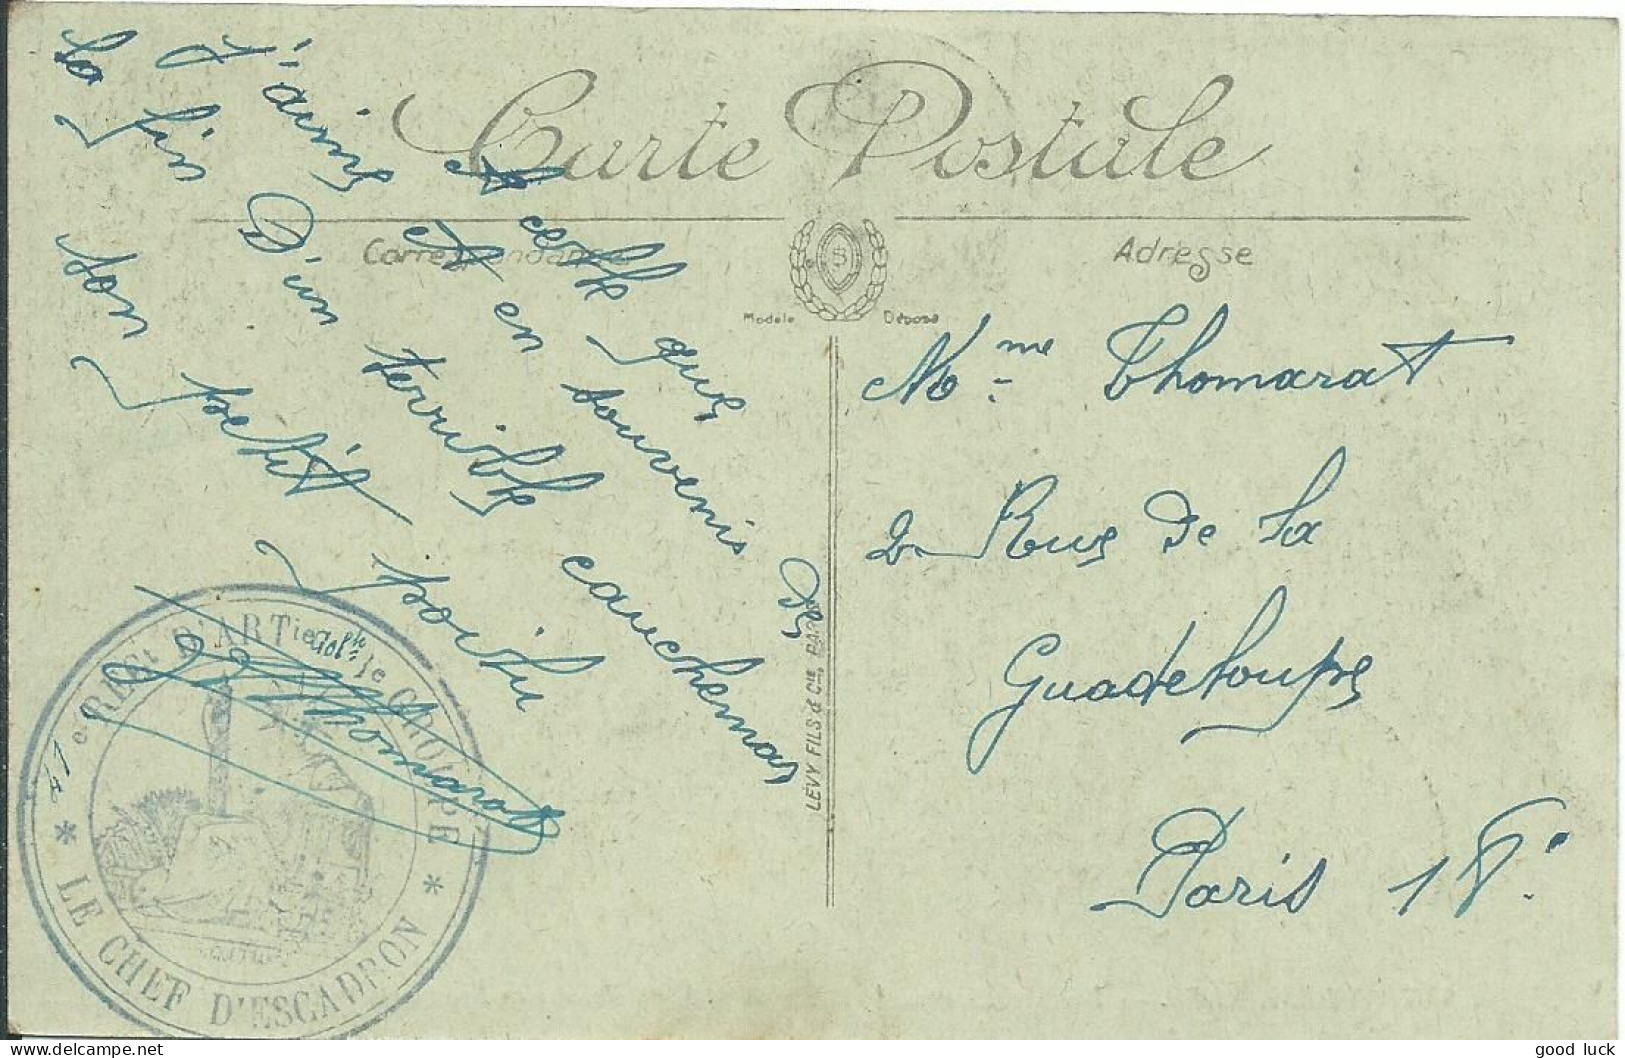 Carte Postale
Correspondance
Adresse
Modèle Déposé
A celle que
j'aime et en souvenir de
la fin D'un terrible cauchemar
ton petit poilu
Thomarat
Mme Thomarat
2 Rue De la
Guadeloupe
Paris 18e
LEVY FILS & Cie PARIS
47e REGt D'ARTie 1e GROUPE
* LE CHEF D'ESCADRON *
good luck